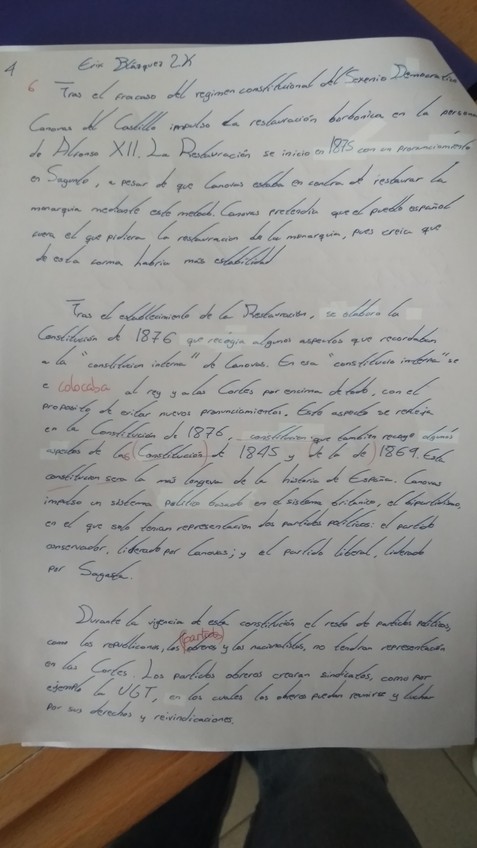 4 Erix Blázquez 2X
6
Tras el fracaso del regimen constitucional del Sexenio Democratico
Canovas del Castillo impulso la restauración borbonica en la persona
de Alfonso XII. La Restauración se inicio en 1875 con un pronunciamiento
en Sagunto, a pesar de que Canovas estaba en contra de restaurar la
monarquia mediante este metodo. Canovas pretendia que el pueblo español
fuera el que pidiera la restauracion de la monarquia, pues creia que
de esta forma habria más estabilidad
Tras el establecimiento de la Restauración, se elabora la
Constitución de 1876 que recogia algunos aspectos que recordaban
a la "constitucion interna" de Canovas. En esa "constitucio interna" se
e colocaba al rey y a las Cortes por encima de todo, con el
proposito de evitar nuevos pronunciamientos. Este aspecto se refleja
en la Constitución de 1876, constitucion que tambien recoge algunos
aspectos de las (Constitución) de 1845 y (de la de) 1869. Esta
constitucion sera la más longeva de la historia de España. Canovas
impulso un sistema politico basado en el sistema britanico, el bipartidismo,
en el que solo tenian representacion dos partidos politicos: el partido
conservador, liderado por Canovas; y el partido liberal, liderado
por Sagasta.
Durante la vigencia de esta constitución el resto de partidos politicos,
(partidos)
como los republicanos, los obreros y los nacionalistas, no tendran representación
en las Cortes. Los partidos obreros crearan sindicatos, como por
ejemplo la UGT, en los cuales los obreros puedan reunirse y luchar
por sus derechos y reivindicaciones.